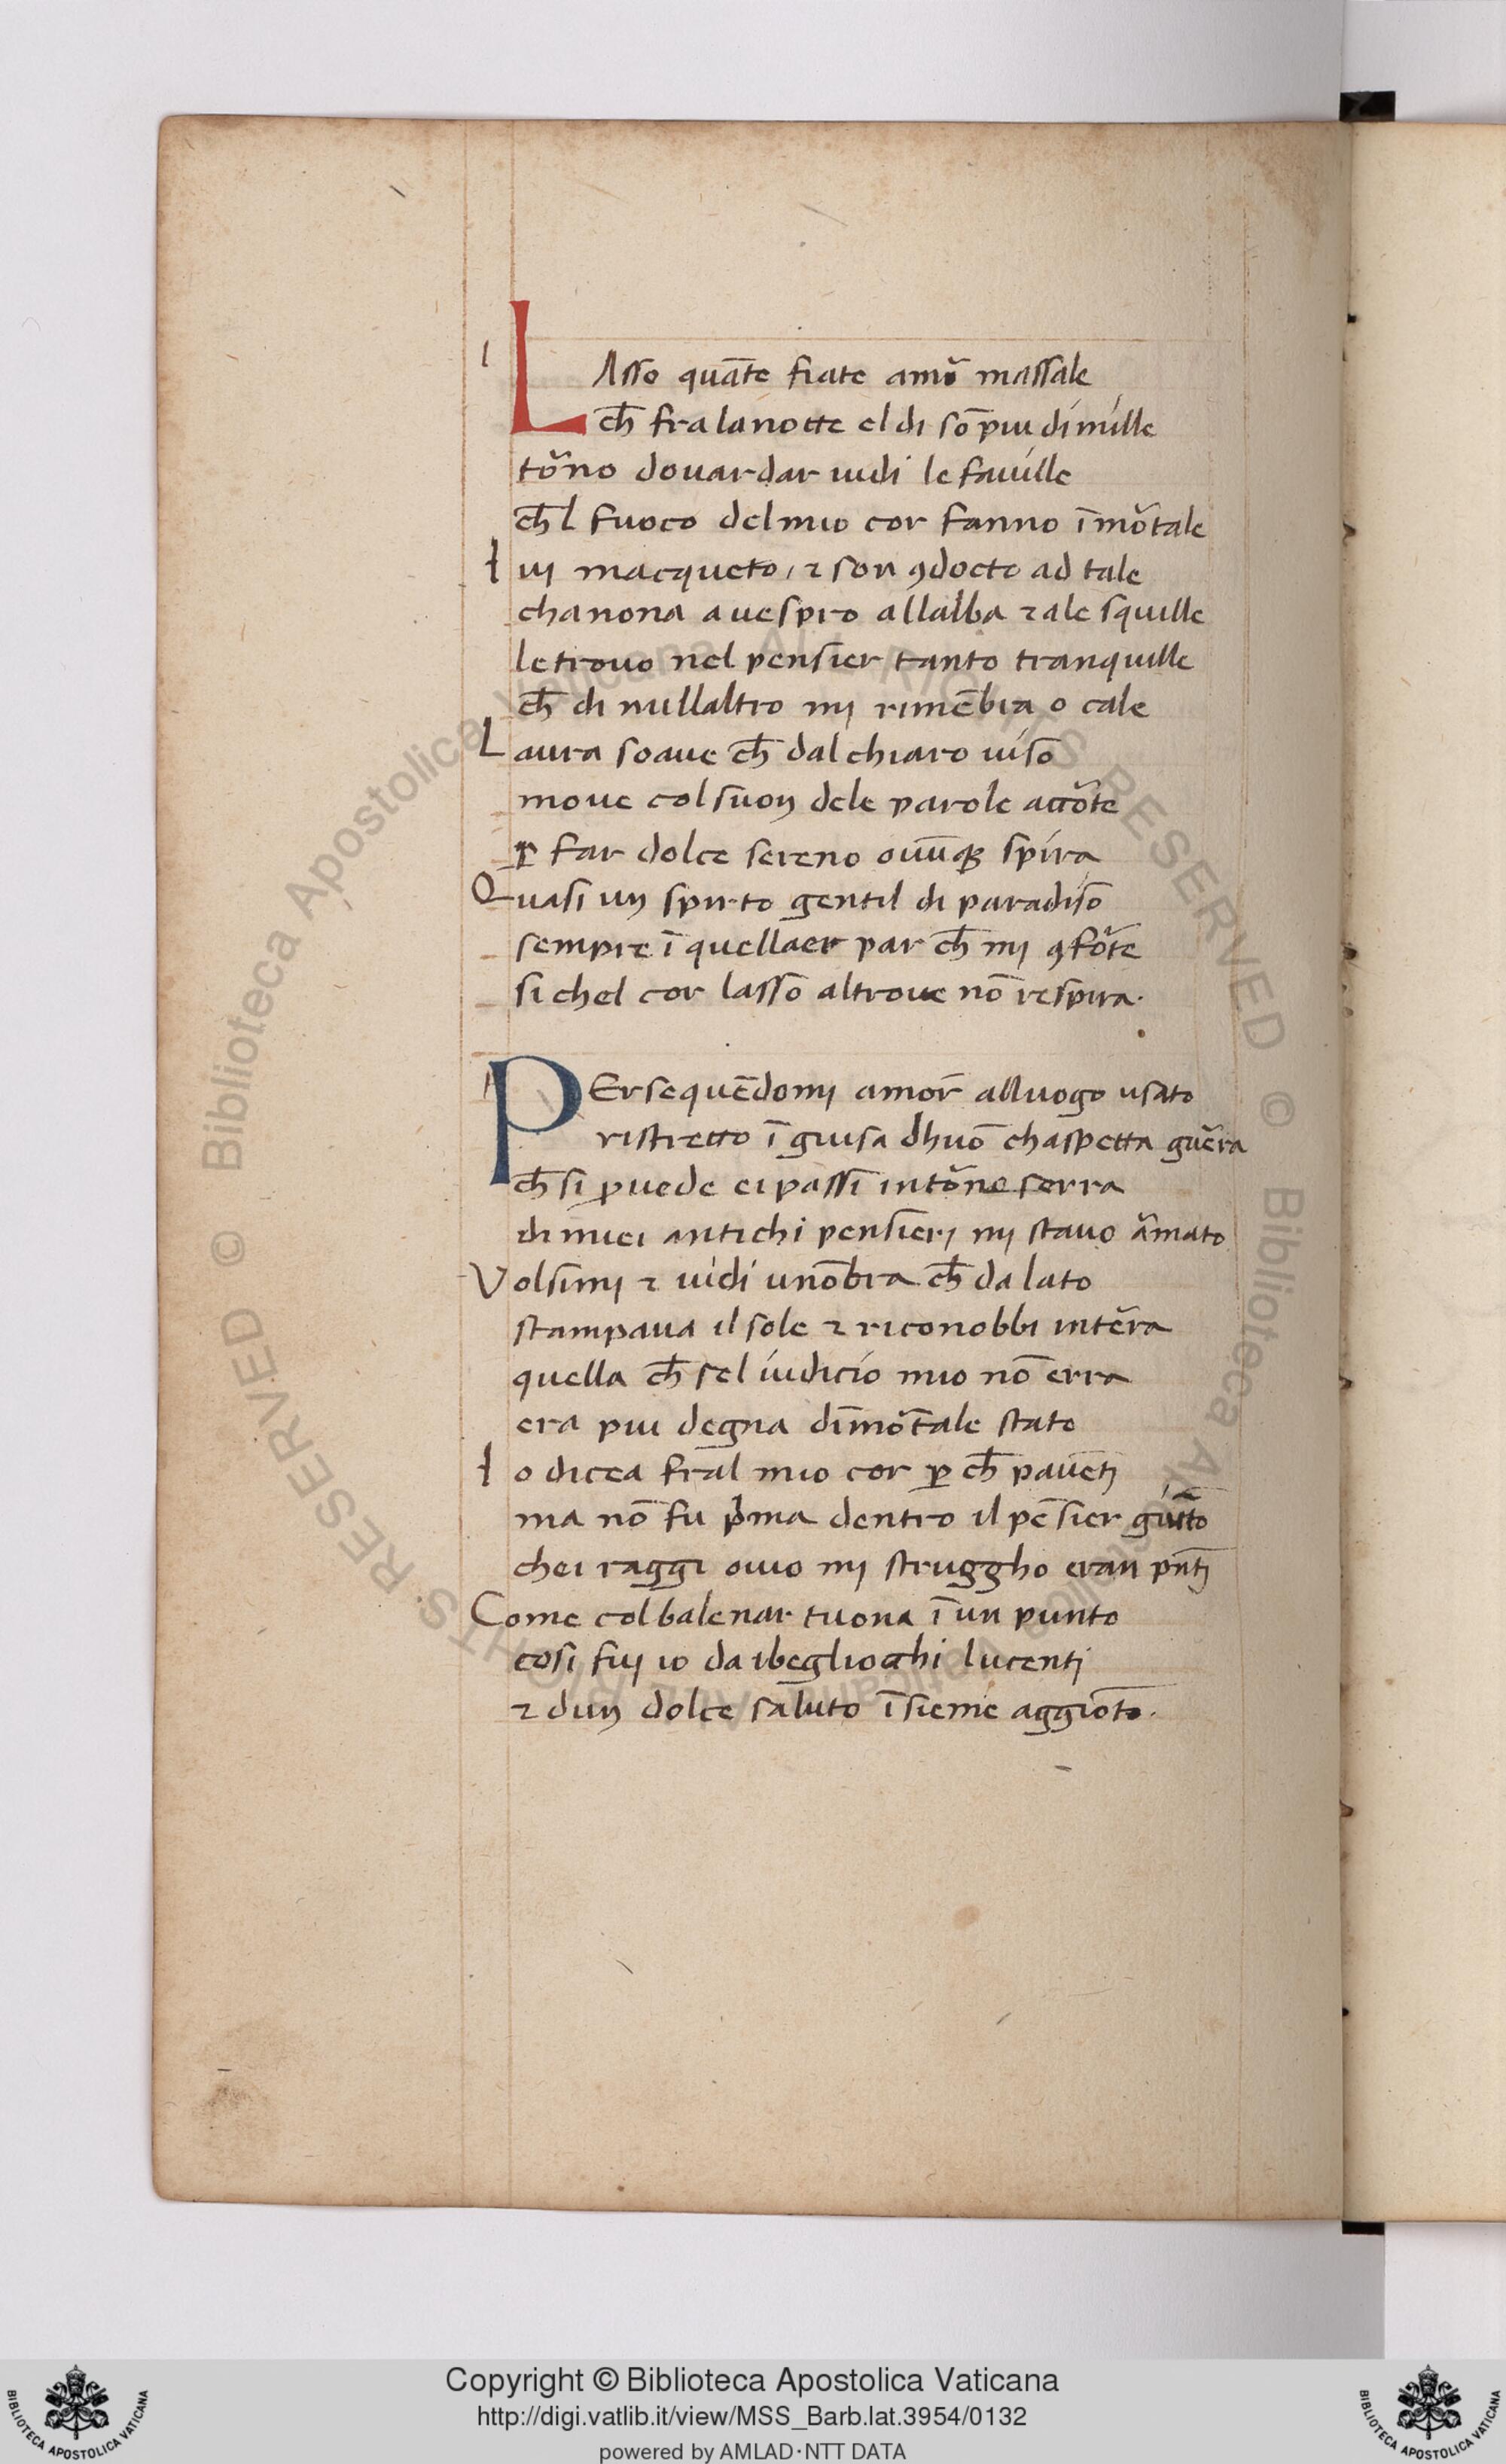 LAsso quāte fiate amō massale
ch̄ fra la notte el di sō piu di mille
tōno douardar uidi le fauille
ch̄l fuoco del mio cor fanno īmōtale
Iui macqueto, ⁊ son ꝯdocto ad tale
cha nona a uespro allalba ⁊ ale squille
le trouo nel pensier tanto tranquille
ch̄ di nullaltro mi rimēbra o cale
Laura soaue ch̄ dal chiaro uiso
moue col suon dele parole accōte
ꝑ far dolce sereno ouūqꝫ spira
Quasi un spirto gentil di paradiso
sempre ī quellaer par ch̄ mi ꝯfōte
si chel cor lasso altroue nō respira.
PErsequēdomi amor̄ alluogo usato
ristretto ī guisa dhuō chaspetta guēra
ch̄ si ꝓuede ei passi intōno serra
di miei antichi pensieri mi stauo āmato
Volsimi ⁊ uidi unōbra ch̄ da lato
stampaua il sole ⁊ riconobbi intēra
quella ch̄ sel iudicio mio nō erra
era piu degna dīmōtale stato
Io dicea fral mio cor ꝑ ch̄ pauēti
ma nō fu p̄ma dentro il pēsier giūto
chei raggi ouio mi struggho eran pn̄ti
Come col balenar tuona ī un punto
cosi fui io da ibegliochi lucenti
⁊ dun dolce saluto īsieme aggiōto.
Copyright © Biblioteca Apostolica Vaticana
http://digi.vatlib.it/view/MSS_Barb.lat.3954/0132
powered by AMLAD·NTT DATA